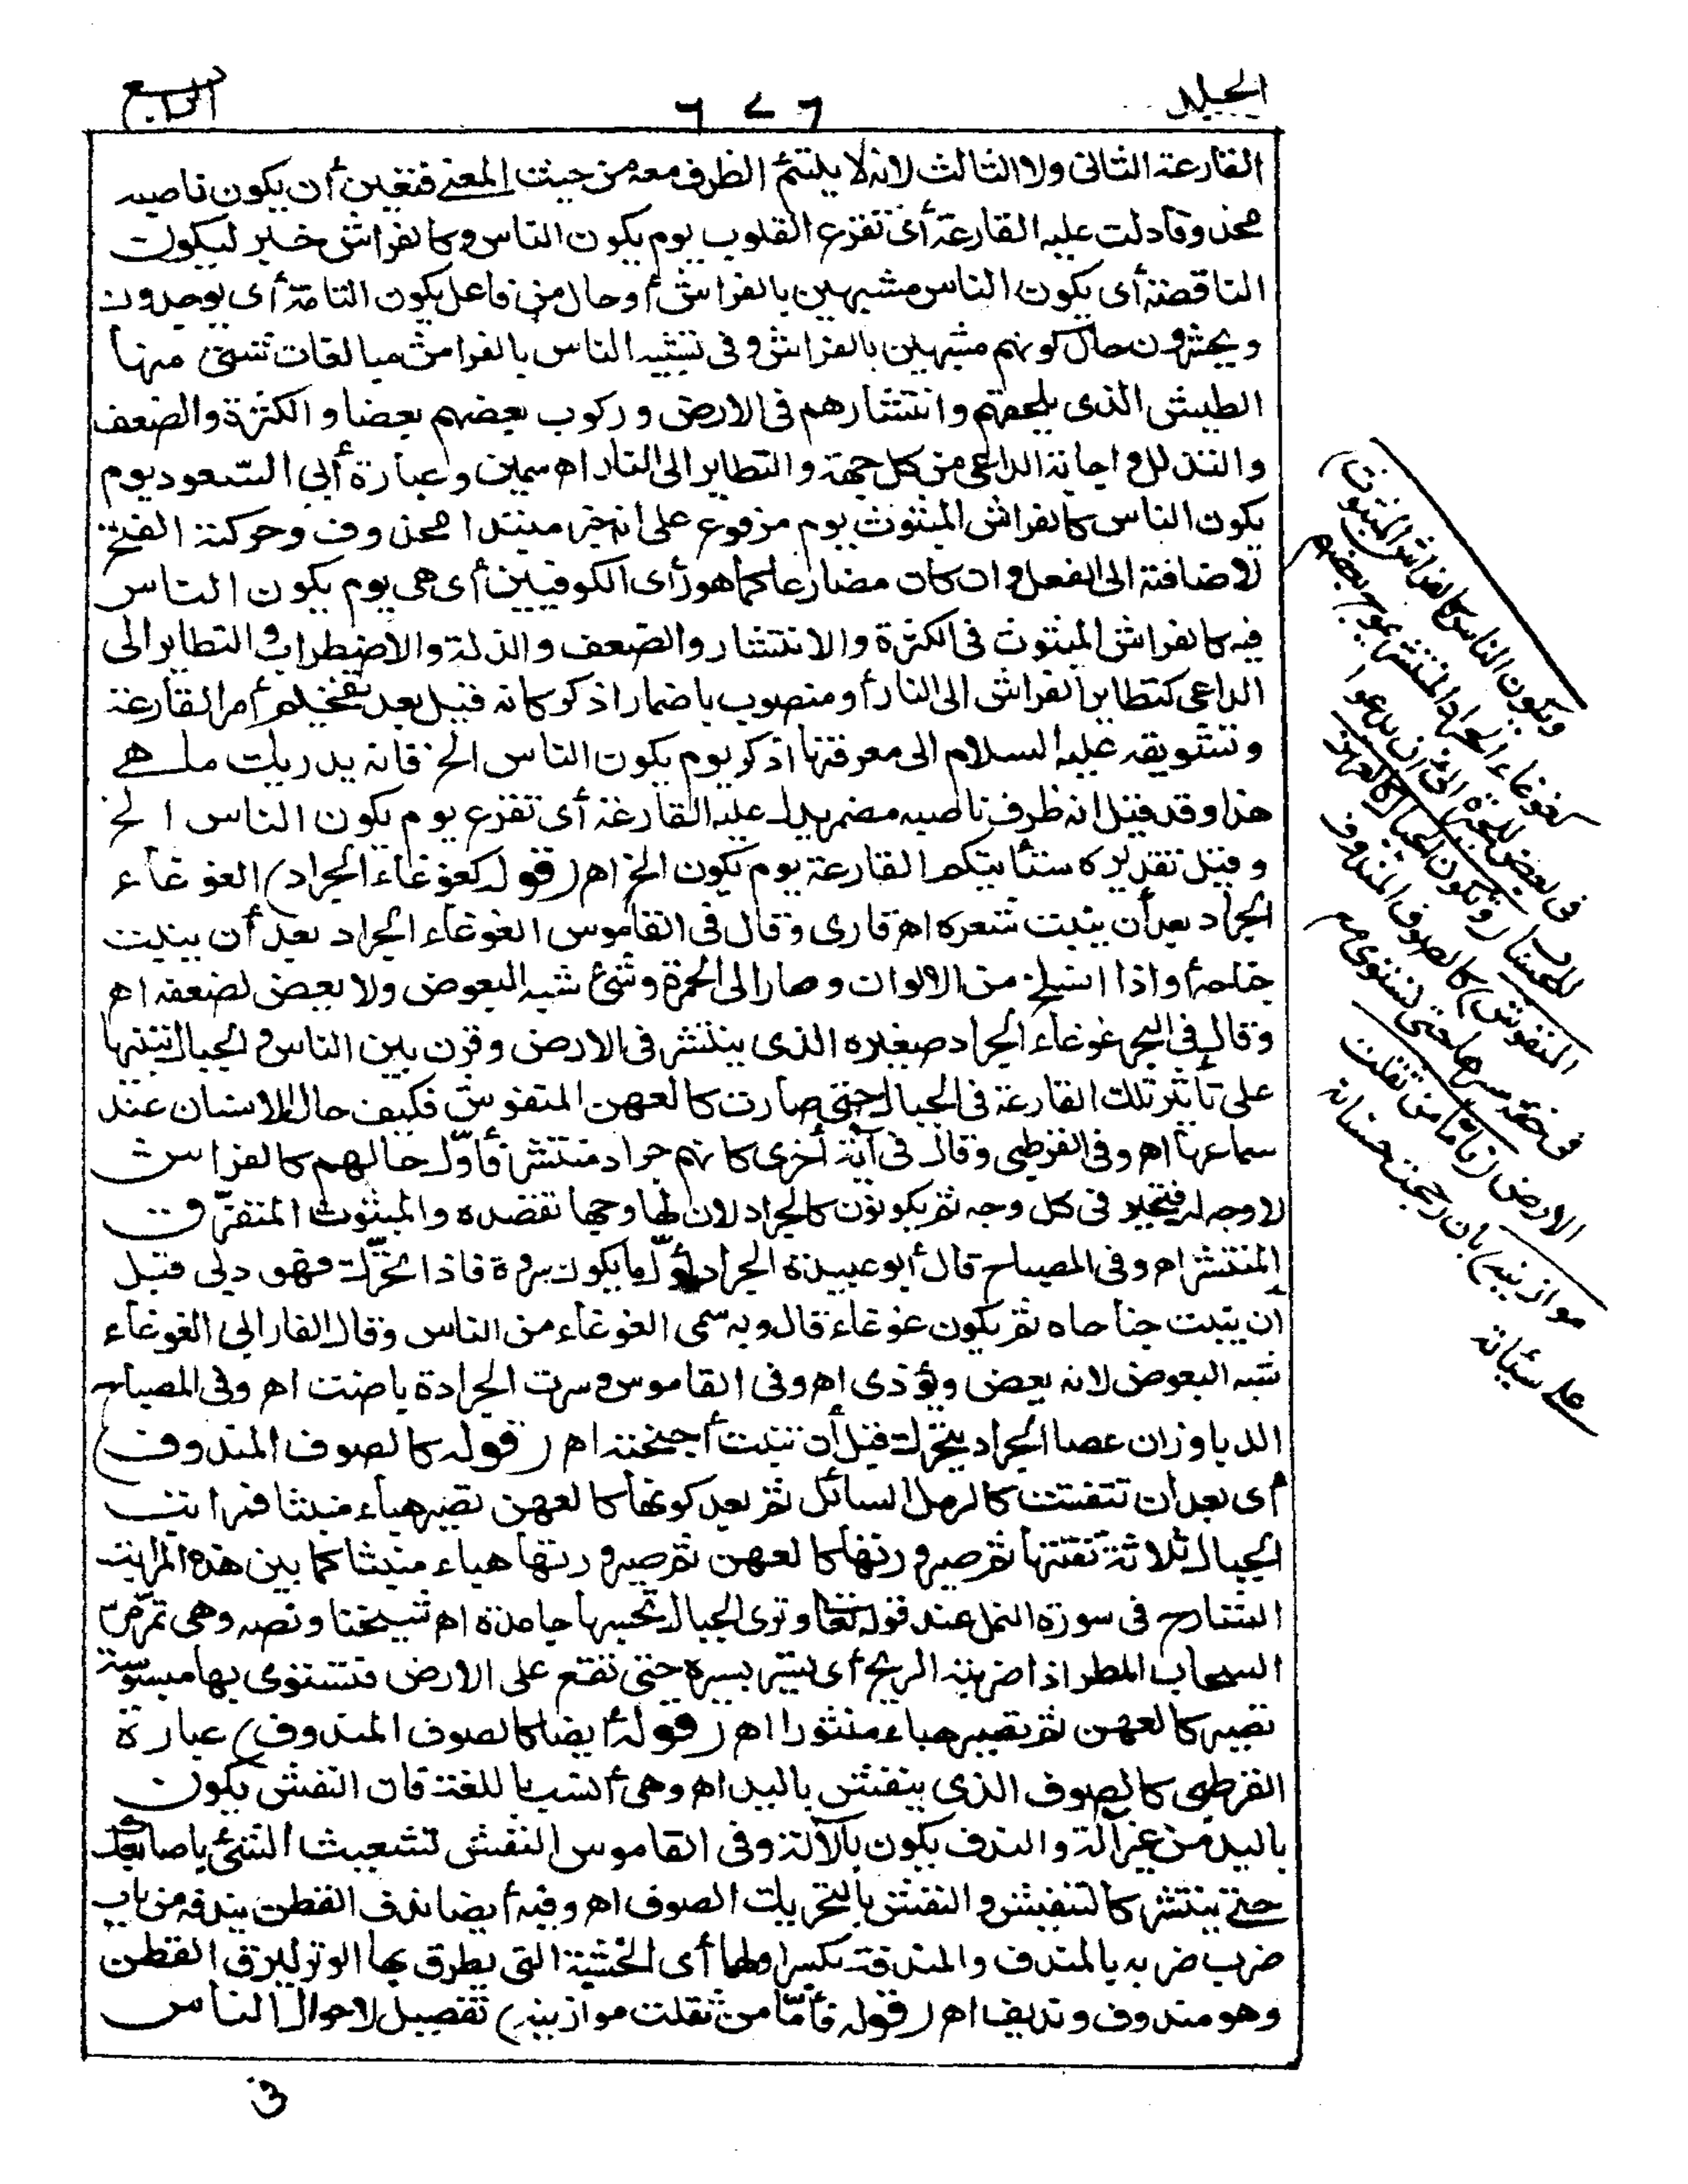 الجلد
٦٧٦
الرابع
القارعة الثانى ولا الثالث لانه لا يلتئم الظرف معه من حيث المعنى فتعين أن يكون ناصبه
محذوفا دلت عليه القارعة أى تقزع القلوب يوم يكون الناس وكالفراش خبر ليكون
الناقصة أى يكون الناس مشبهين بالفراش أو حال من فاعل يكون التامة أى يوجدون
ويحشرون حال كونهم مشبهين بالفراش وفى تشبيه الناس بالفراش مبالغات شتى منها
الطيش الذى يلحقهم وانتشارهم فى الارض وركوب بعضهم بعضا والكثرة والضعف
والتذلل واجابة الداعى من كل جهة والتطاير الى النار اه سمين وعبارة أبى السعود يوم
يكون الناس كالفراش المبثوث يوم مرفوع على انه خبر مبتدا محذوف وحركته الفتح
لاضافته الى الفعل وان كان مضارعا كما هو رأى الكوفيين أى هى يوم يكون الناس
فيه كالفراش المبثوث فى الكثرة والانتشار والضعف والذلة والاضطراب والتطاير الى
الداعى كتطاير الفراش الى النار أو منصوب باضمار اذكر كانه قيل بعد تفخيم أمر القارعة
وتشويقه عليه السلام الى معرفتها اذكر يوم يكون الناس الخ فانه يدريك ما هى
هذا وقد قيل انه ظرف ناصبه مضمر يدل عليه القارعة أى تقزع يوم يكون الناس الخ
وقيل تقديره ستأتيكم القارعة يوم يكون الخ اه (قوله كغوغاء الجراد) الغوغاء
الجراد بعد أن ينبت شعره اه قارى وقال فى القاموس الغوغاء الجراد بعد أن ينبت
جناحه أو اذا انسلخ من الالوان وصار الى الحمرة وشئ شبه البعوض ولا يعض لضعفه اه
وقال فى البحر غوغاء الجراد صغيره الذى ينتشر فى الارض وقرن بين الناس والجبال تنبيها
على تأثير تلك القارعة فى الجبال حتى صارت كالعهن المنفوش فكيف حال الانسان عند
سماعها اه وفى القرطبى وقال فى آية أخرى كانهم جراد منتشر فأول حالهم كالفراش
لا وجه له فيتحير فى كل وجه ثم يكونون كالجراد لان لها وجها تقصده والمبثوث المتفرق
المنتشر اه وفى المصباح قال أبو عبيدة الجراد أول ما يكون سروة فاذا تحرك فهو دبى قبل
ان ينبت جناحاه ثم يكون غوغاء قال وبه سمى الغوغاء من الناس وقال الفارابى الغوغاء
شبه البعوض لانه يعض ويؤذى اه وفى القاموس وسرت الجرادة باضت اه وفى المصباح
الدبا وزان عصا الجراد يتحرك قبل أن تنبت أجنحته اه (قوله كالصوف المندوف)
أى بعد ان تتفتت كالرمل السائل ثم بعد كونها كالعهن تصير هباء منبثا فمراتب
الجبال ثلاثة تفتتها ثم صيرورتها كالعهن ثم صيرورتها هباء منبثا كما بين هذه المراتب
الشارح فى سورة النمل عند قوله تعالى وترى الجبال تحسبها جامدة اه شيخنا ونصه وهى تمر مر
السحاب المطر اذا ضربته الريح أى تسير بسيره حتى تقع على الارض فتستوى بها مبسوسة
تصير كالعهن ثم تصير هباء منثورا اه (قوله أيضا كالصوف المندوف) عبارة
القرطبى كالصوف الذى ينفش باليد اه وهى أنسب باللغة فان النفش يكون
باليد من غير آلة والندف يكون بالآلة وفى القاموس النفش تشعيث الشئ باصابعك
حتى ينتشر كالتنفيش والنفش بالتحريك الصوف اه وفيه أيضا ندف القطن يندفه من باب
ضرب ضربه بالمندف والمندفة بكسر أولهما أى الخشبة التى يطرق بها الوتر ليرق القطن
وهو مندوف ونديف اه (قوله فأما من ثقلت موازينه) تفصيل لاحوال الناس
ويكون الناس كالفراش المبثوث)
كغوغاء الجراد المنتشر يموج بعضهم
فى بعض للحيرة الى أن يدعوا
للحساب (وتكون الجبال كالعهن
المنفوش) كالصوف المندوف
فى خفة سيرها حتى تستوى مع
الارض (فأما من ثقلت
موازينه) بان رجحت حسناته
على سيئاته
فى